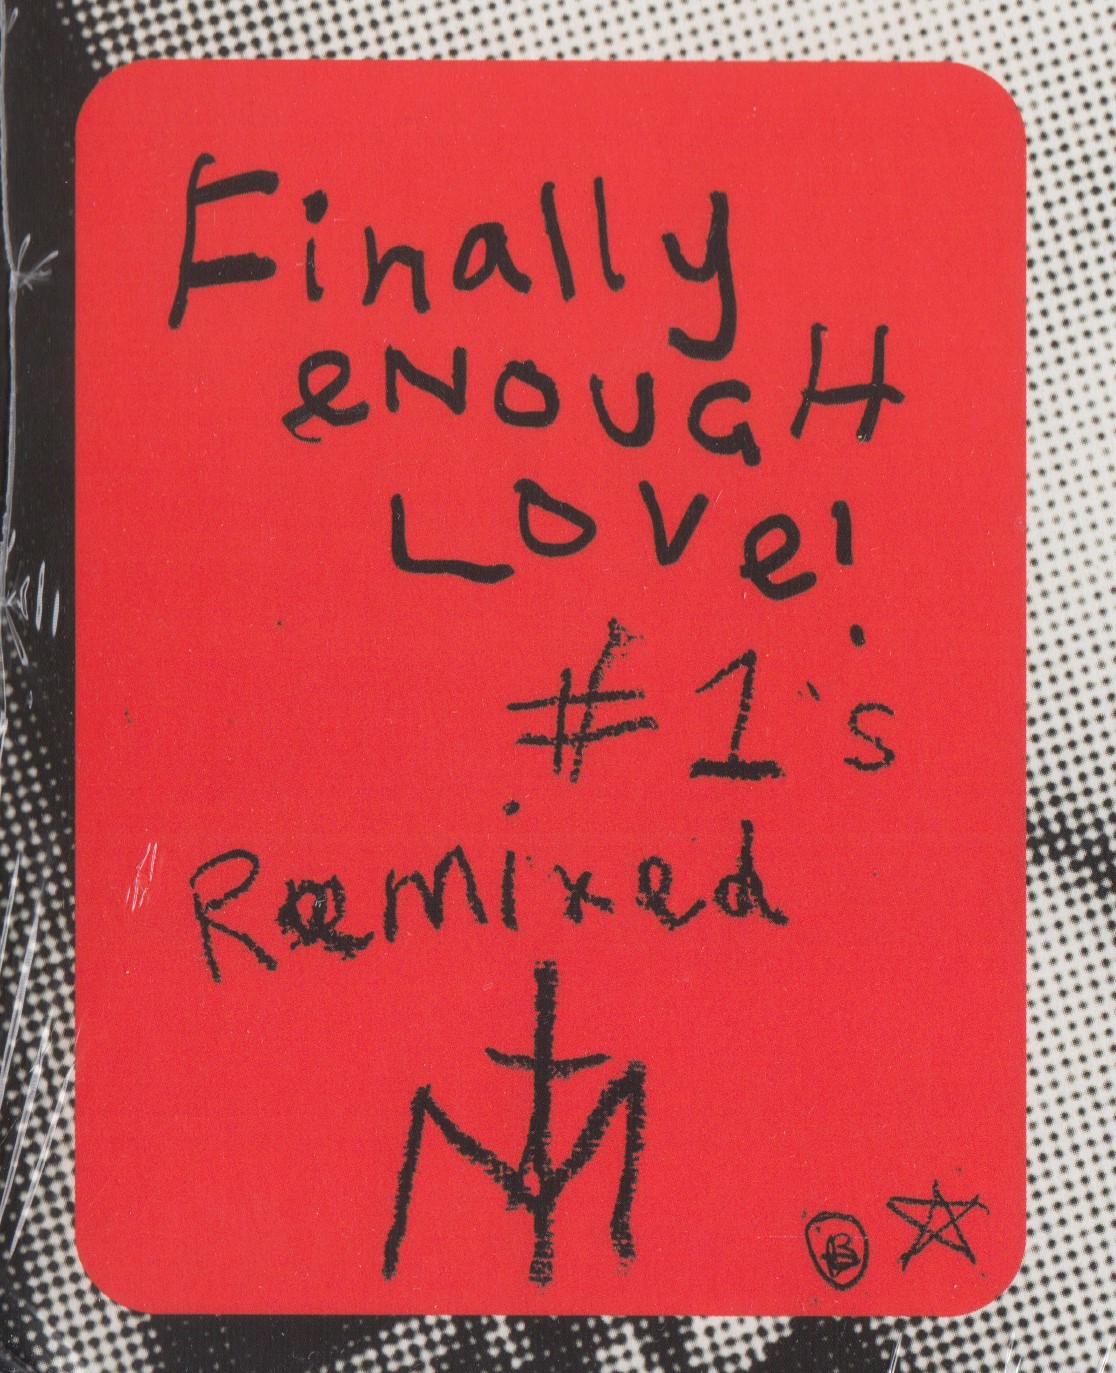 Finally
eNOUGH
LOVe!
#1's
Remixed
M
B